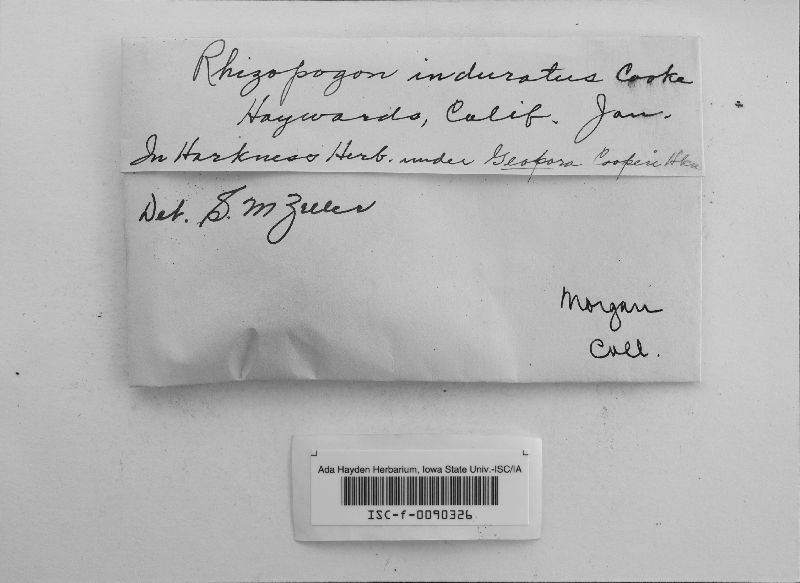 Rhizopogon induratus Cooke
Haywards, Calif. Jan.
In Harkness Herb. under Geopora Cooperi Hkn
Det. S. M Zeller
Morgan
Coll.
Ada Hayden Herbarium, Iowa State Univ.-ISC/IA
ISC-f-0090326